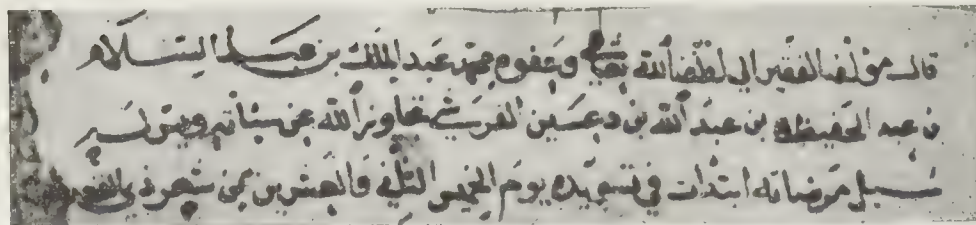 قال مؤلفه الفقير الى لطف الله تعالى وعفوه محمد عبد الملك بن عبد السلام
بن عبد الحفيظ بن عبد الله بن دعسين القرشي تجاوز الله عن سيئاتهم ويسر
سبيل مرضاته ابتدات في تسويده يوم الخميس الثاني والعشرين من شهر ذي القعدة